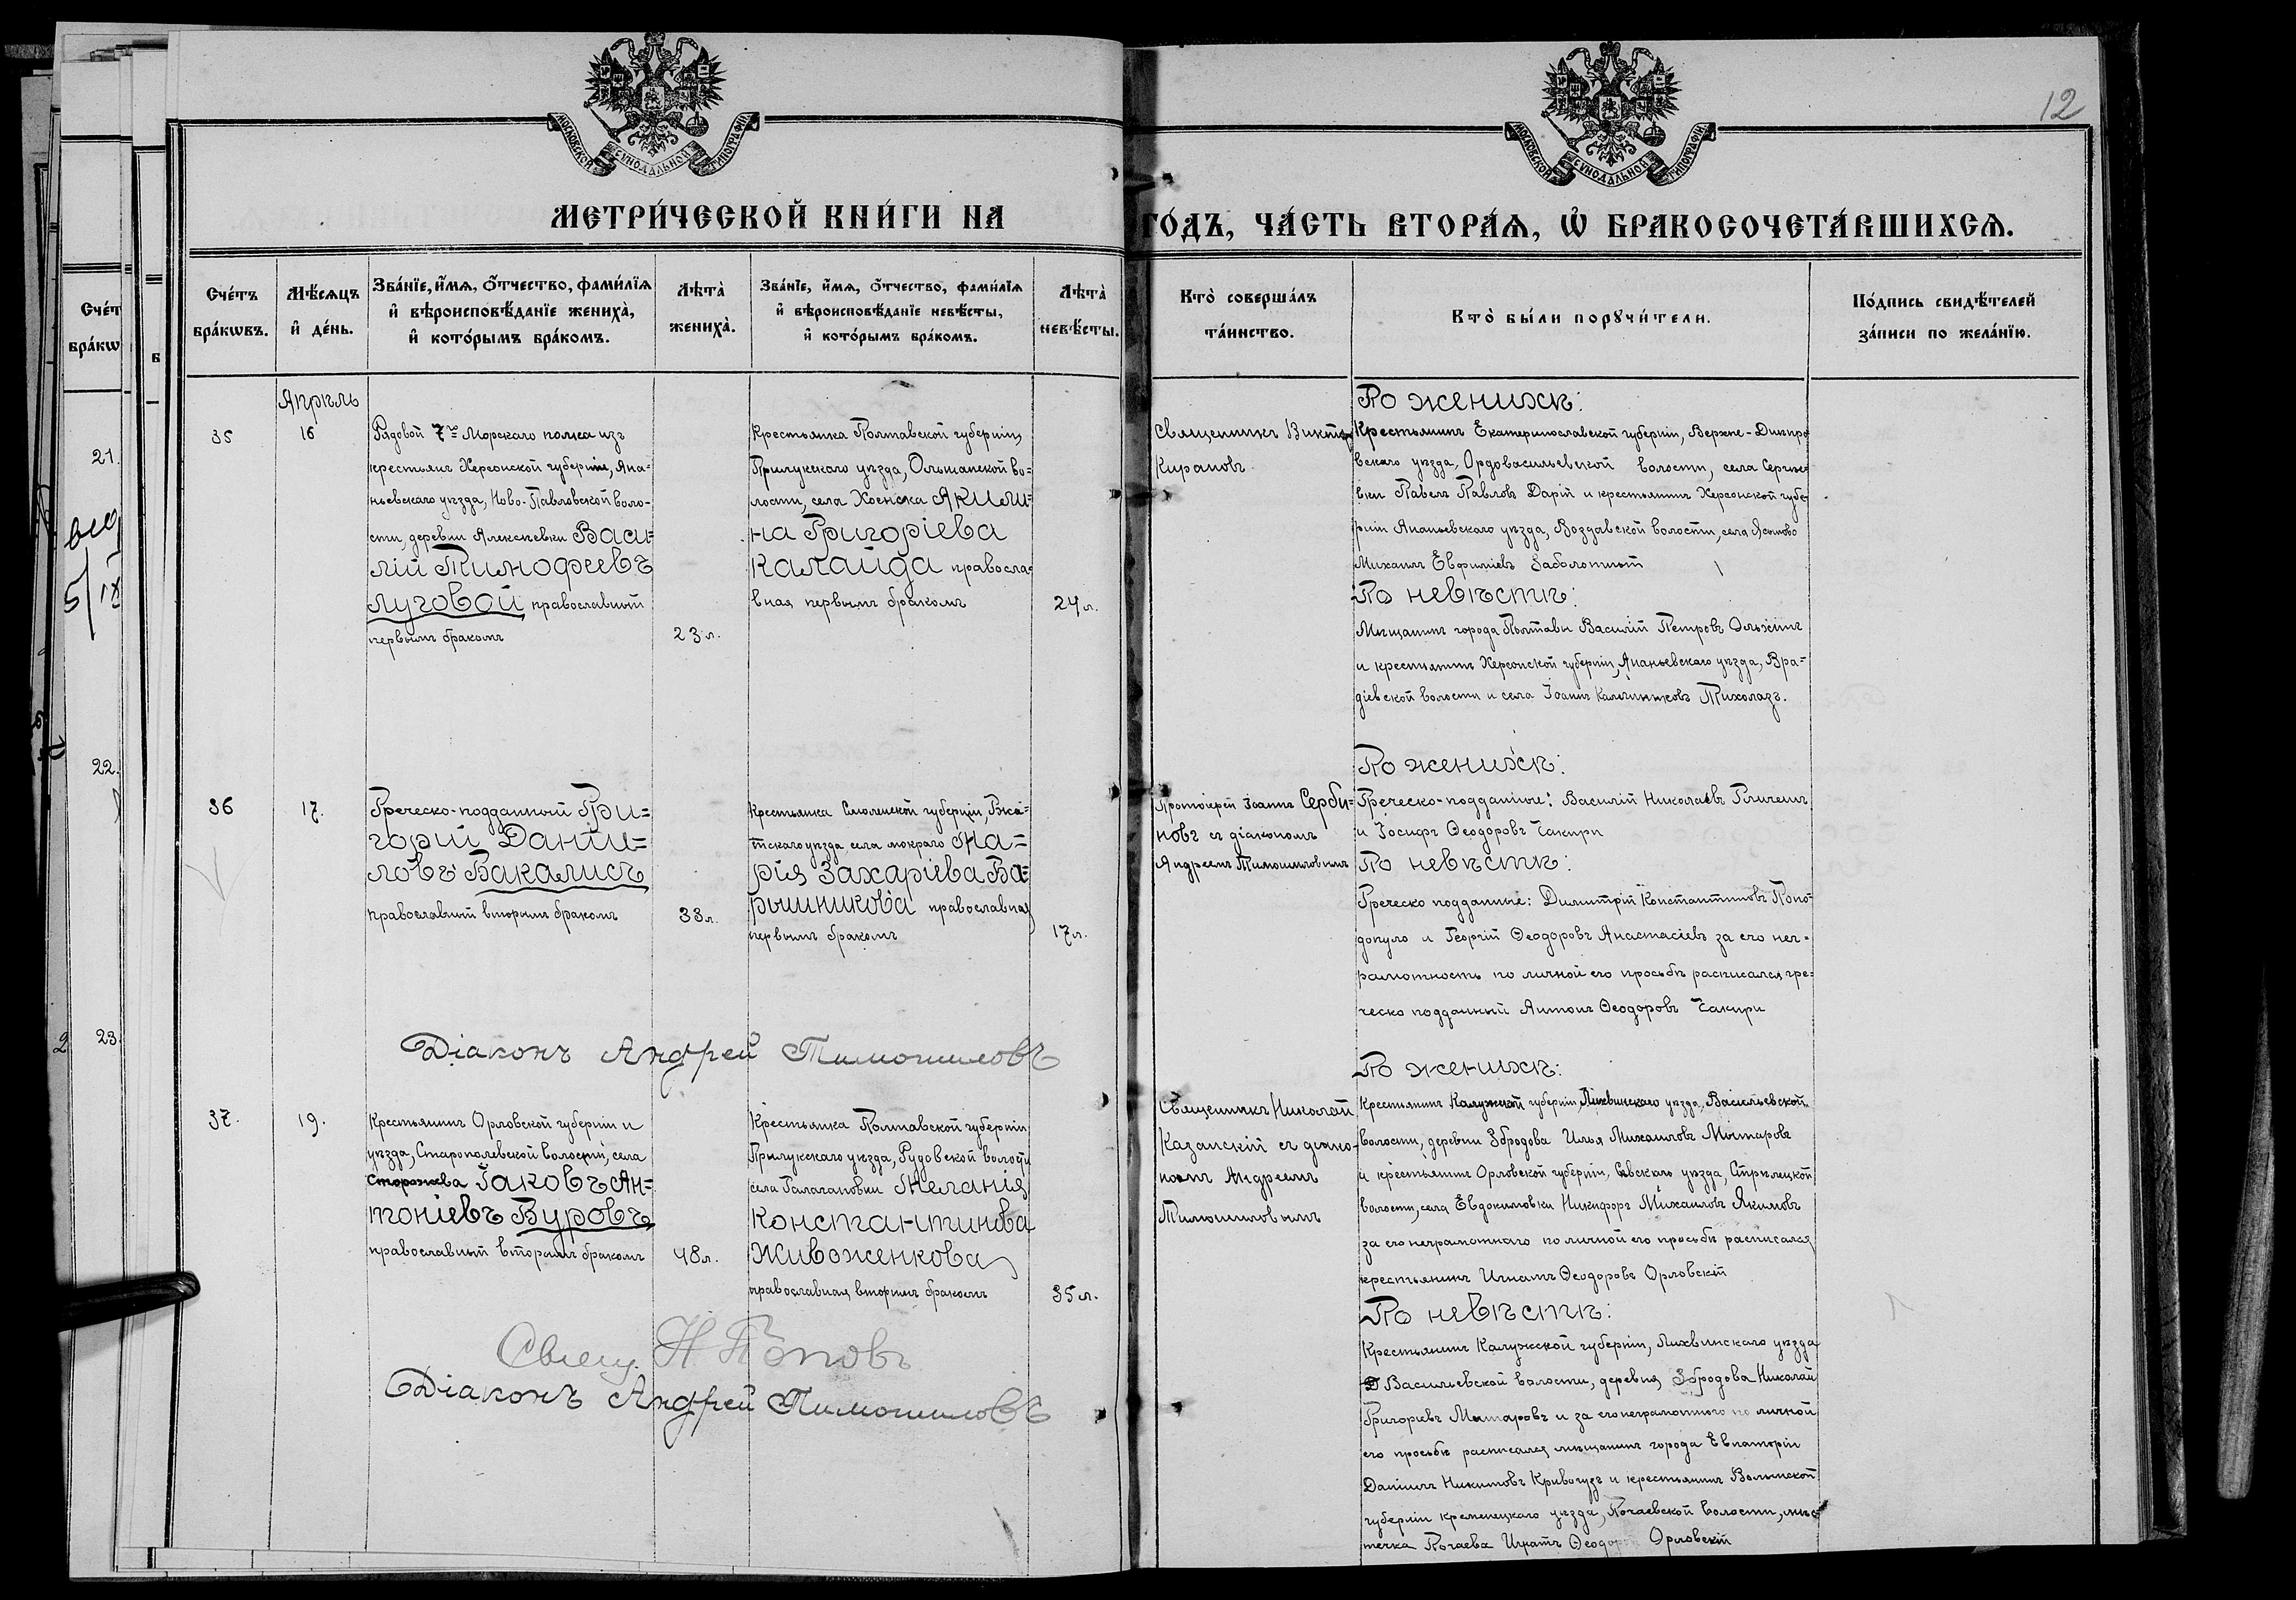 МОСКОВСКОЙ СѴНОДАЛЬНОЙ ТИПОГРАФІИ
МОСКОВСКОЙ СѴНОДАЛЬНОЙ ТИПОГРАФІИ
12
МЕТРИ́ЧЕСКОЙ КНИ́ГИ НА
ГО́ДЪ, ЧА́СТЬ ВТОРА́Ѧ, Ѽ БРАКОСОЧЕТА́ВШИХСѦ.
Сче́тъ бра́кѡвъ.
Мѣ́сяцъ и҆ де́нь.
Зва́нїе, и҆́мѧ, ѻ҆́тчество, фами́лїѧ
и҆ вѣроисповѣ́данїе жениха̀,
и҆ кото́рымъ бра́комъ.
Лѣта̀ жениха̀.
Зва́нїе, и҆́мѧ, ѻ҆́тчество, фами́лїѧ
и҆ вѣроисповѣ́данїе невѣ́сты,
и҆ кото́рымъ бра́комъ.
Лѣта̀ невѣ́сты.
Кто̀ соверша́лъ
та́инство.
Кто̀ бы́ли порꙋчи́тели.
По́дпись свидѣ́телей
за́писи по жела́нїю.
Сче́т
бра́кѡ
21.
22.
23.
Апрѣль
35
16
Рядовой 7го Морскаго полка изъ
крестьянъ Херсонской губерніи, Ана=
ньевскаго уѣзда, Ново-Павловской воло-
сти, деревни Алексѣевки Васи=
лій Тимофеевъ
Луговой православный
первымъ бракомъ
23 л.
Крестьянка Полтавской губерніи,
Прилукскаго уѣзда, Ольшанской во=
лости, села Хоенска Акили=
на Григоріева
Калайда правосла=
вная первымъ бракомъ
24 л.
Священникъ Викторъ
Кирановъ
По женихѣ:
Крестьянинъ Екатеринославской губерніи, Верхне-Днѣпро
вскаго уѣзда, Ордовасильевской волости, села Сергѣе
вки Павелъ Павловъ Дарій и крестьянинъ Херсонской губе
рніи Ананьевскаго уѣзда, Воздавской волости, села Ясиново
Михаилъ Евфиміевъ Заболотный
По невѣстѣ:
Мѣщанинъ города Полтавы Василій Петровъ Ольхинъ
и крестьянинъ Херсонской губерніи, Ананьевскаго уѣзда, Вра=
діевской волости и села Іоаннъ Калинниковъ Тихолазъ.
36
17.
Греческо-подданный Гри=
горій Даніи=
ловъ Бакалисъ
православный вторымъ бракомъ
33 л.
Крестьянка Смоленской губерніи, Гжа=
тскаго уѣзда села мокраго Ма=
рія Захаріева Ба=
рышникова православная
первымъ бракомъ
17 л.
Протоіерей Іоаннъ Серби=
новъ съ діакономъ
Андреемъ Тимошиловымъ
По женихѣ:
Греческо-подданные: Василій Николаевъ Гличенъ
и Іосифъ Ѳеодоровъ Чакири
По невѣстѣ:
Греческо подданные: Димитрій Константиновъ Попо=
допуло и Георгій Ѳеодоровъ Анастасіевъ за его нег=
рамотность по личной его просьбѣ расписался гре=
ческо подданный Антонъ Ѳеодоровъ Чакири
Діаконъ Андрей Тимошиловъ
37.
19.
Крестьянинъ Орловской губерніи и
уѣзда, Старопалевской волости, села
Сторожева Іаковъ Ан=
тоніевъ Буровъ
православный вторымъ бракомъ
48 л.
Крестьянка Полтавской губерніи
Прилукскаго уѣзда, Рудовской волости
села Галагановки Меланія
Константинова
Живоженкова
православная вторымъ бракомъ
35 л.
Священникъ Николай
Казанскій съ діако-
номъ Андреемъ
Тимошиловымъ
По женихѣ:
Крестьянинъ Калужской губерніи, Лихвинскаго уѣзда, Васильевской
волости, деревни Збродова Илья Михаиловъ Мытаровъ
и крестьянинъ Орловской губерніи, Сѣвскаго уѣзда, Стрѣлецкой
волости, села Евдокимовки Никифоръ Михаиловъ Якимовъ
за его неграмотнаго по личной его просьбѣ расписался
крестьянинъ Игнатъ Ѳеодоровъ Орловскій
По невѣстѣ:
Крестьянинъ Калужской губерніи, Лихвинскаго уѣзда
Васильевской волости, деревня Збродова Николай
Григорьевъ Мытаровъ и за его неграмотного по личной
его просьбѣ расписался мѣщанинъ города Евпаторіи
Даніилъ Никитовъ Кривогузъ и крестьянинъ Волынской
губерніи кременецкаго уѣзда, Почаевской волости, мѣс
течка Почаева Игнатъ Ѳеодоровъ Орловскій
Свящ. Н. Поповъ
Діаконъ Андрей Тимошиловъ